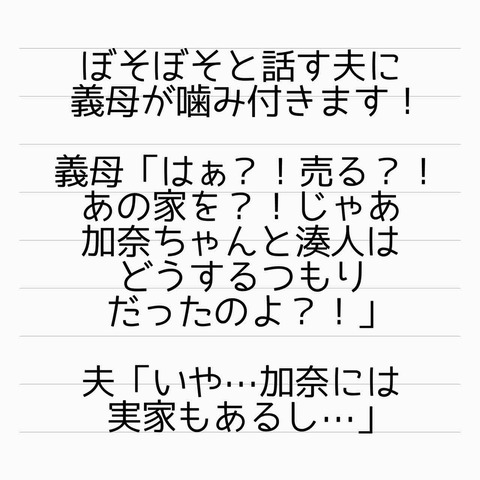 ぼそぼそと話す夫に
義母が噛み付きます！
義母「はぁ？！売る？！
あの家を？！じゃあ
加奈ちゃんと湊人は
どうするつもり
だったのよ？！」
夫「いや…加奈には
実家もあるし…」